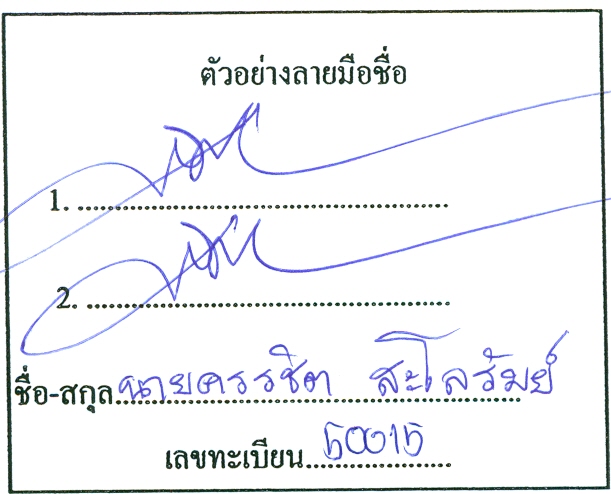 ตัวอย่างลายมือชื่อ
1. ........................................
2. ........................................
ชื่อ-สกุล นายครรชิต สะโลรัมย์
เลขทะเบียน 50015